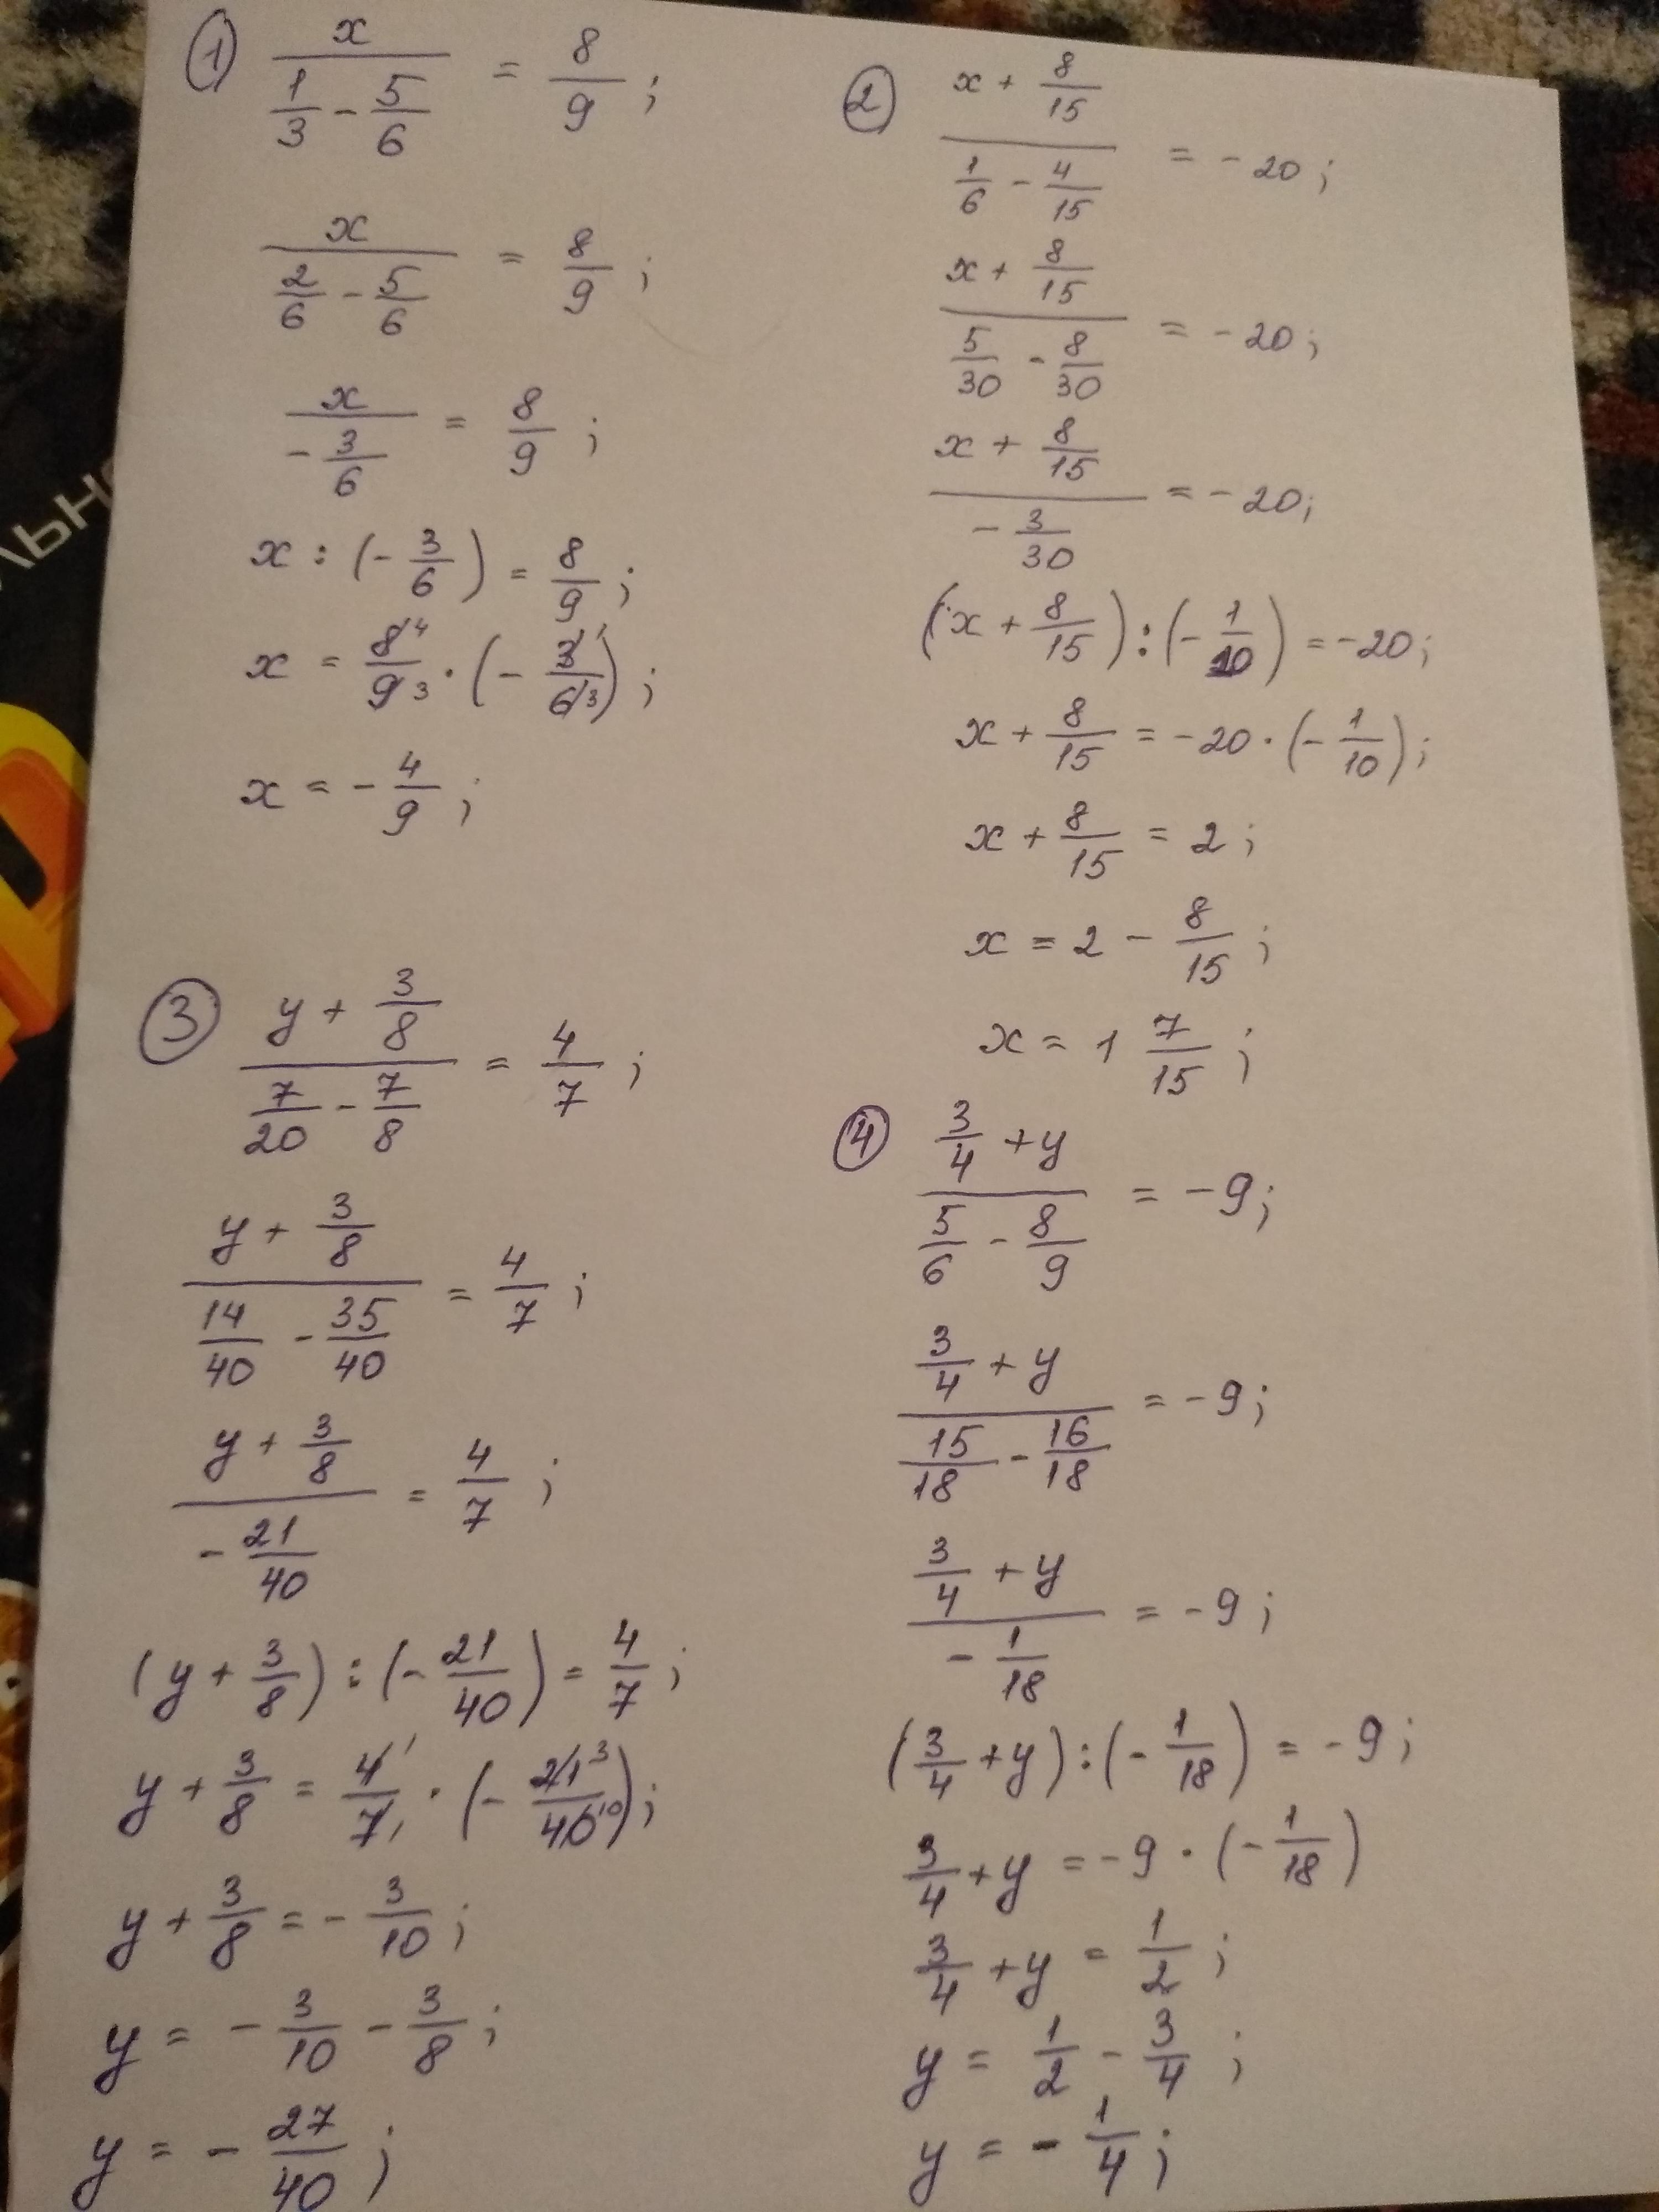 ① x/(1/3 - 5/6) = 8/9;
x/(2/6 - 5/6) = 8/9;
x/(-3/6) = 8/9;
x : (-3/6) = 8/9;
x = 8⁴/9₃ · (-3¹/6₃);
x = -4/9;
② (x + 8/15)/(1/6 - 4/15) = -20;
(x + 8/15)/(5/30 - 8/30) = -20;
(x + 8/15)/(-3/30) = -20;
(x + 8/15) : (-1/10) = -20;
x + 8/15 = -20 · (-1/10);
x + 8/15 = 2;
x = 2 - 8/15;
x = 1 7/15;
③ (y + 3/8)/(7/20 - 7/8) = 4/7;
(y + 3/8)/(14/40 - 35/40) = 4/7;
(y + 3/8)/(-21/40) = 4/7;
(y + 3/8) : (-21/40) = 4/7;
y + 3/8 = 4¹/7₁ · (-21³/40¹⁰);
y + 3/8 = -3/10;
y = -3/10 - 3/8;
y = -27/40;
④ (3/4 + y)/(5/6 - 8/9) = -9;
(3/4 + y)/(15/18 - 16/18) = -9;
(3/4 + y)/(-1/18) = -9;
(3/4 + y) : (-1/18) = -9;
3/4 + y = -9 · (-1/18)
3/4 + y = 1/2;
y = 1/2 - 3/4;
y = -1/4;